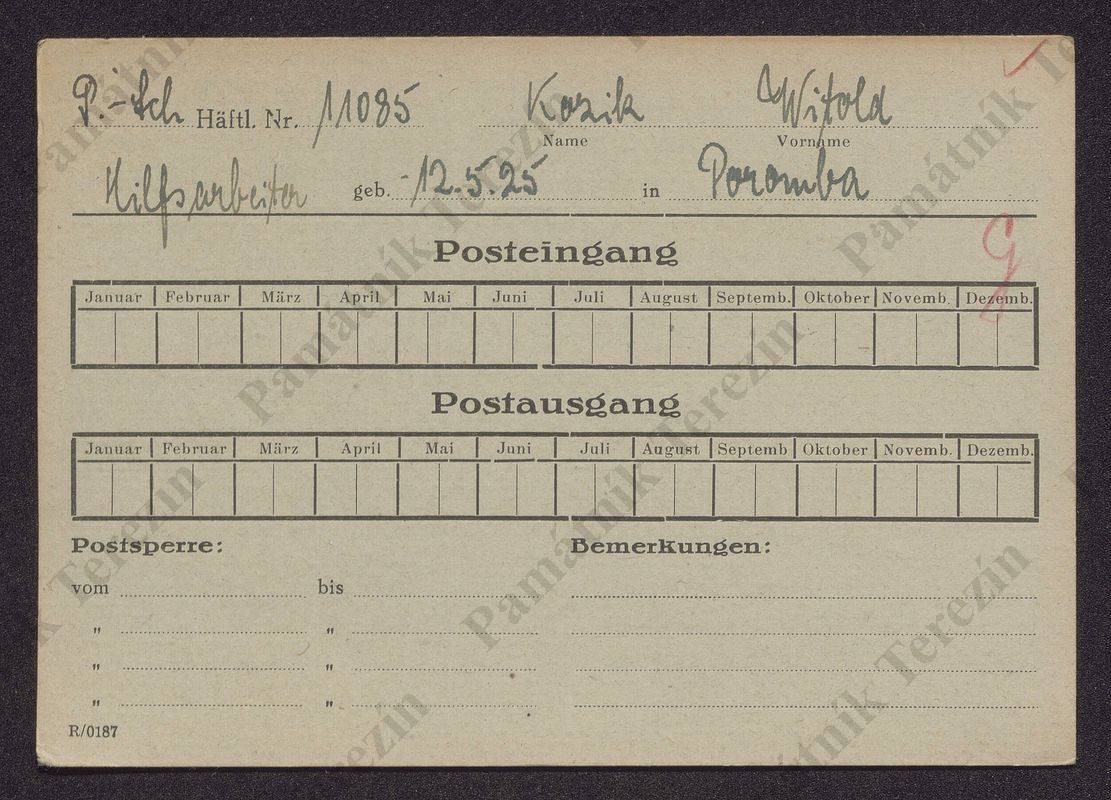 P.-Sch Häftl. Nr. 11085 Kozik Witold
Name Vorname
Hilfsarbeiter geb. 12.5.25 in Poromba
Posteingang
Januar Februar März April Mai Juni Juli August Septemb. Oktober Novemb. Dezemb.
Postausgang
Januar Februar März April Mai Juni Juli August Septemb Oktober Novemb. Dezemb.
Postsperre: Bemerkungen:
vom bis
" "
" "
" "
R/0187
Památník Terezín